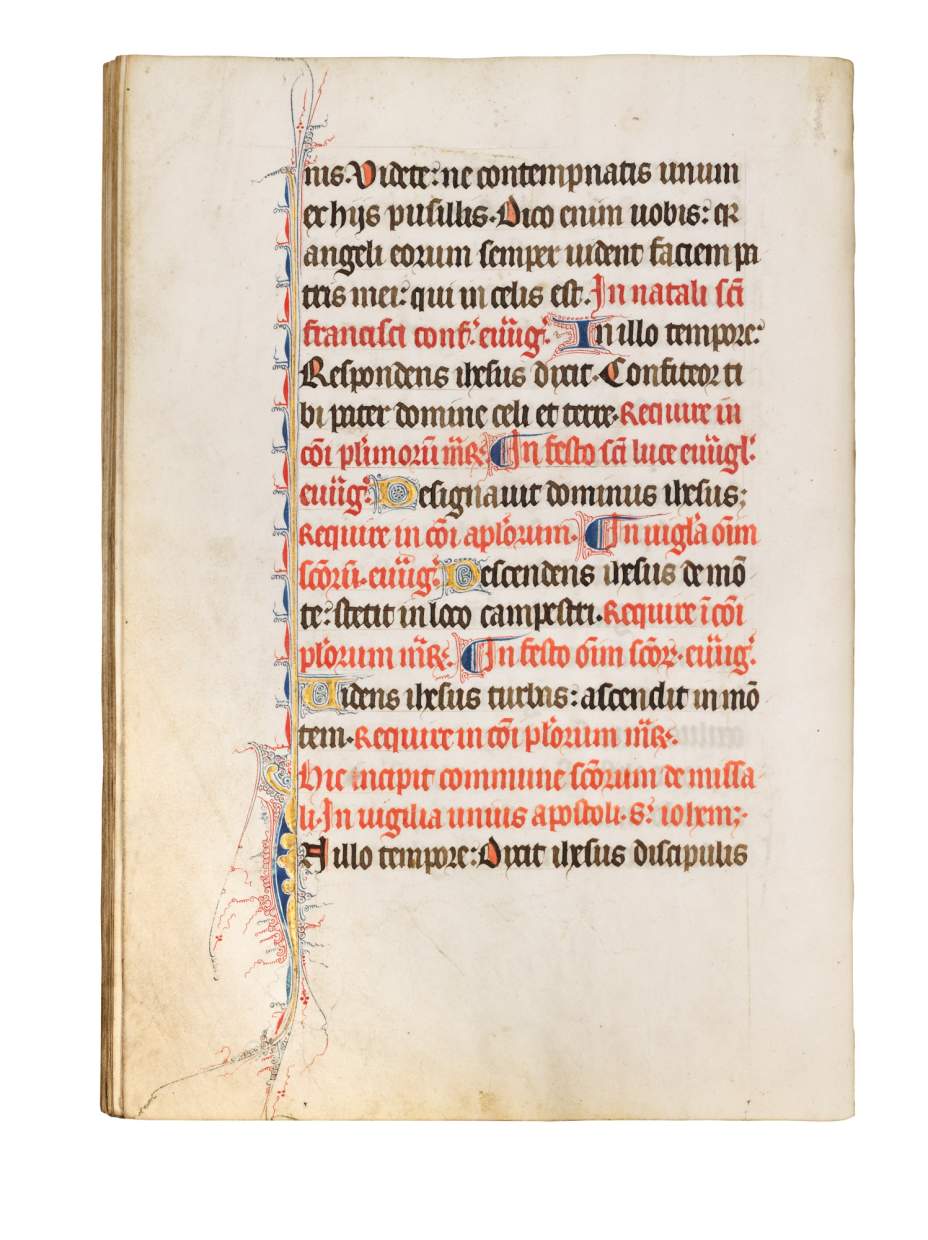 nis. Videte: ne contempnatis unum
ex hijs pusillis. Dico enim uobis: qr
angeli eorum semper uident faciem pa
tris mei: qui in celis est. In natali sc̄i
francisci conf. eūūg̃. In illo tempore:
Respondens ihesus dixit. Confiteor ti
bi pater domine celi et terre. Require in
cōi pl̄imorū m̄r̄. In festo sc̄i luce eūūgl̄.
eūūg̃. Designauit dominus ihesus;
Require in cōi apl̄orum. In uigl̄a om̄
sc̄orū. eūūg̃. Descendens ihesus de mō
te: stetit in loco campestri. Require ī cōi
pl̄orum m̄r̄. In festo om̄ sc̄oꝝ. eūūg̃.
Uidens ihesus turbas: ascendit in mō
tem. Require in cōi pl̄orum m̄r̄.
Hic incipit commune sc̄orum de missa
li. In uigilia unius apostoli. S. iohem;
In illo tempore: Dixit ihesus discipulis